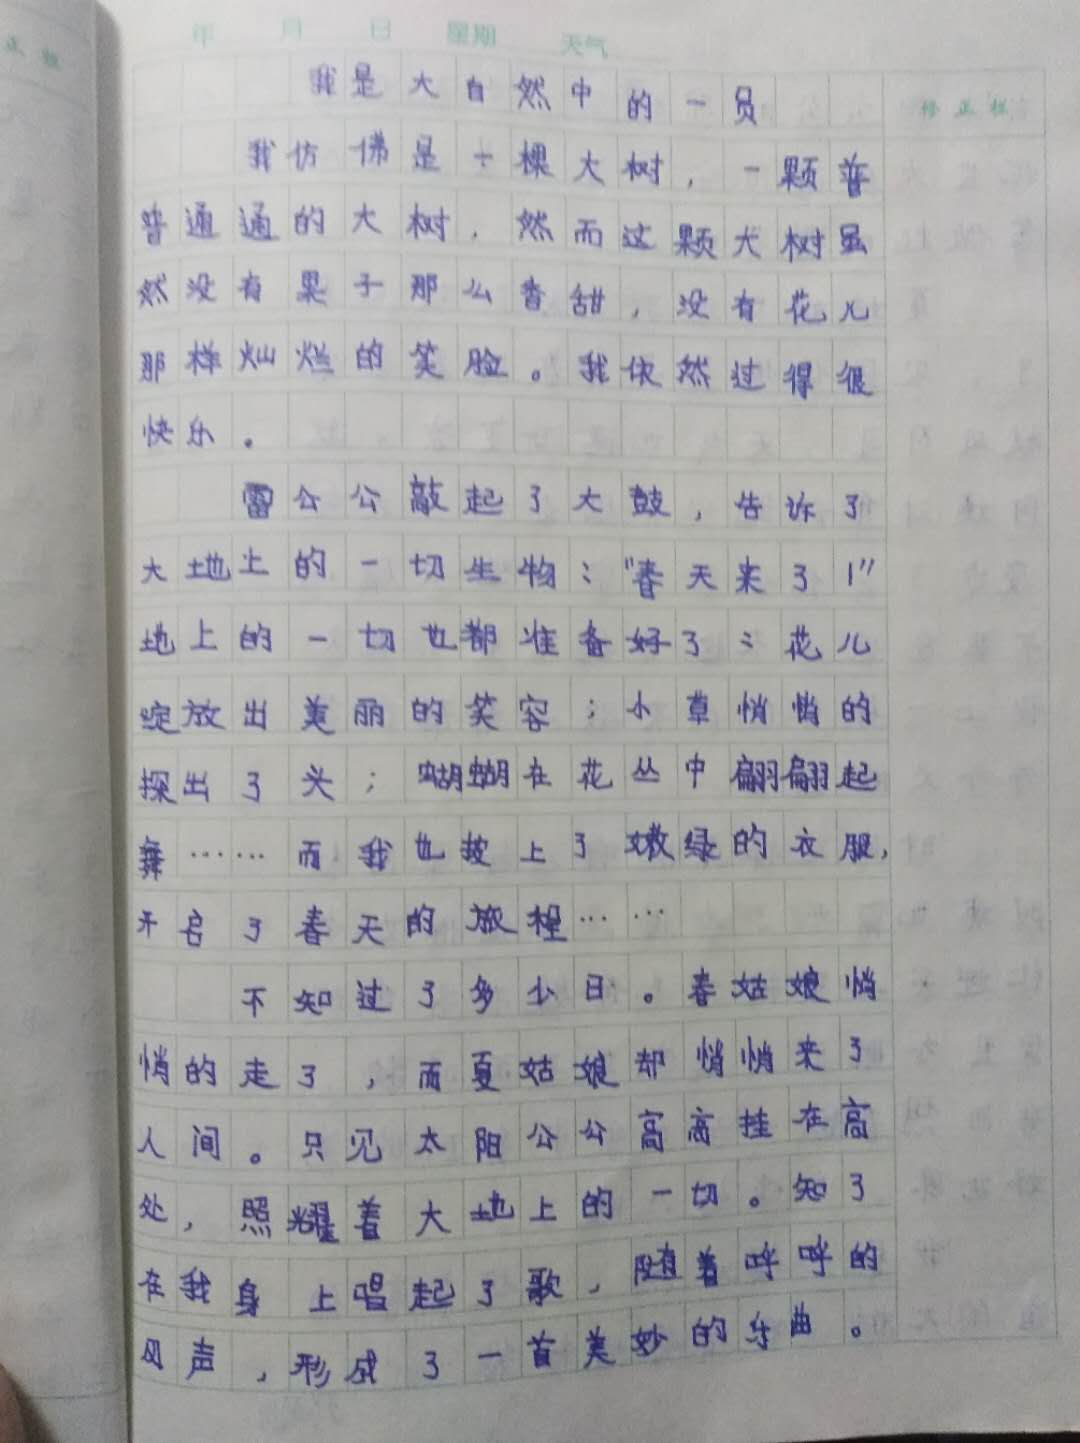 年 月 日 星期 天气
正 栏
修 正 栏
我是大自然中的一员
我仿佛是一棵大树，一颗普
普通通的大树，然而这颗大树虽
然没有果子那么香甜，没有花儿
那样灿烂的笑脸。我依然过得很
快乐。
雷公公敲起了大鼓，告诉了
大地上的一切生物："春天来了！"
地上的一切也都准备好了：花儿
绽放出美丽的笑容；小草悄悄的
探出了头；蝴蝴在花丛中翩翩起
舞……而我也披上了嫩绿的衣服，
开启了春天的旅程……
不知过了多少日。春姑娘悄
悄的走了，而夏姑娘却悄悄来了
人间。只见太阳公公高高挂在高
处，照耀着大地上的一切。知了
在我身上唱起了歌，随着呼呼的
风声，形成了一首美妙的乐曲。